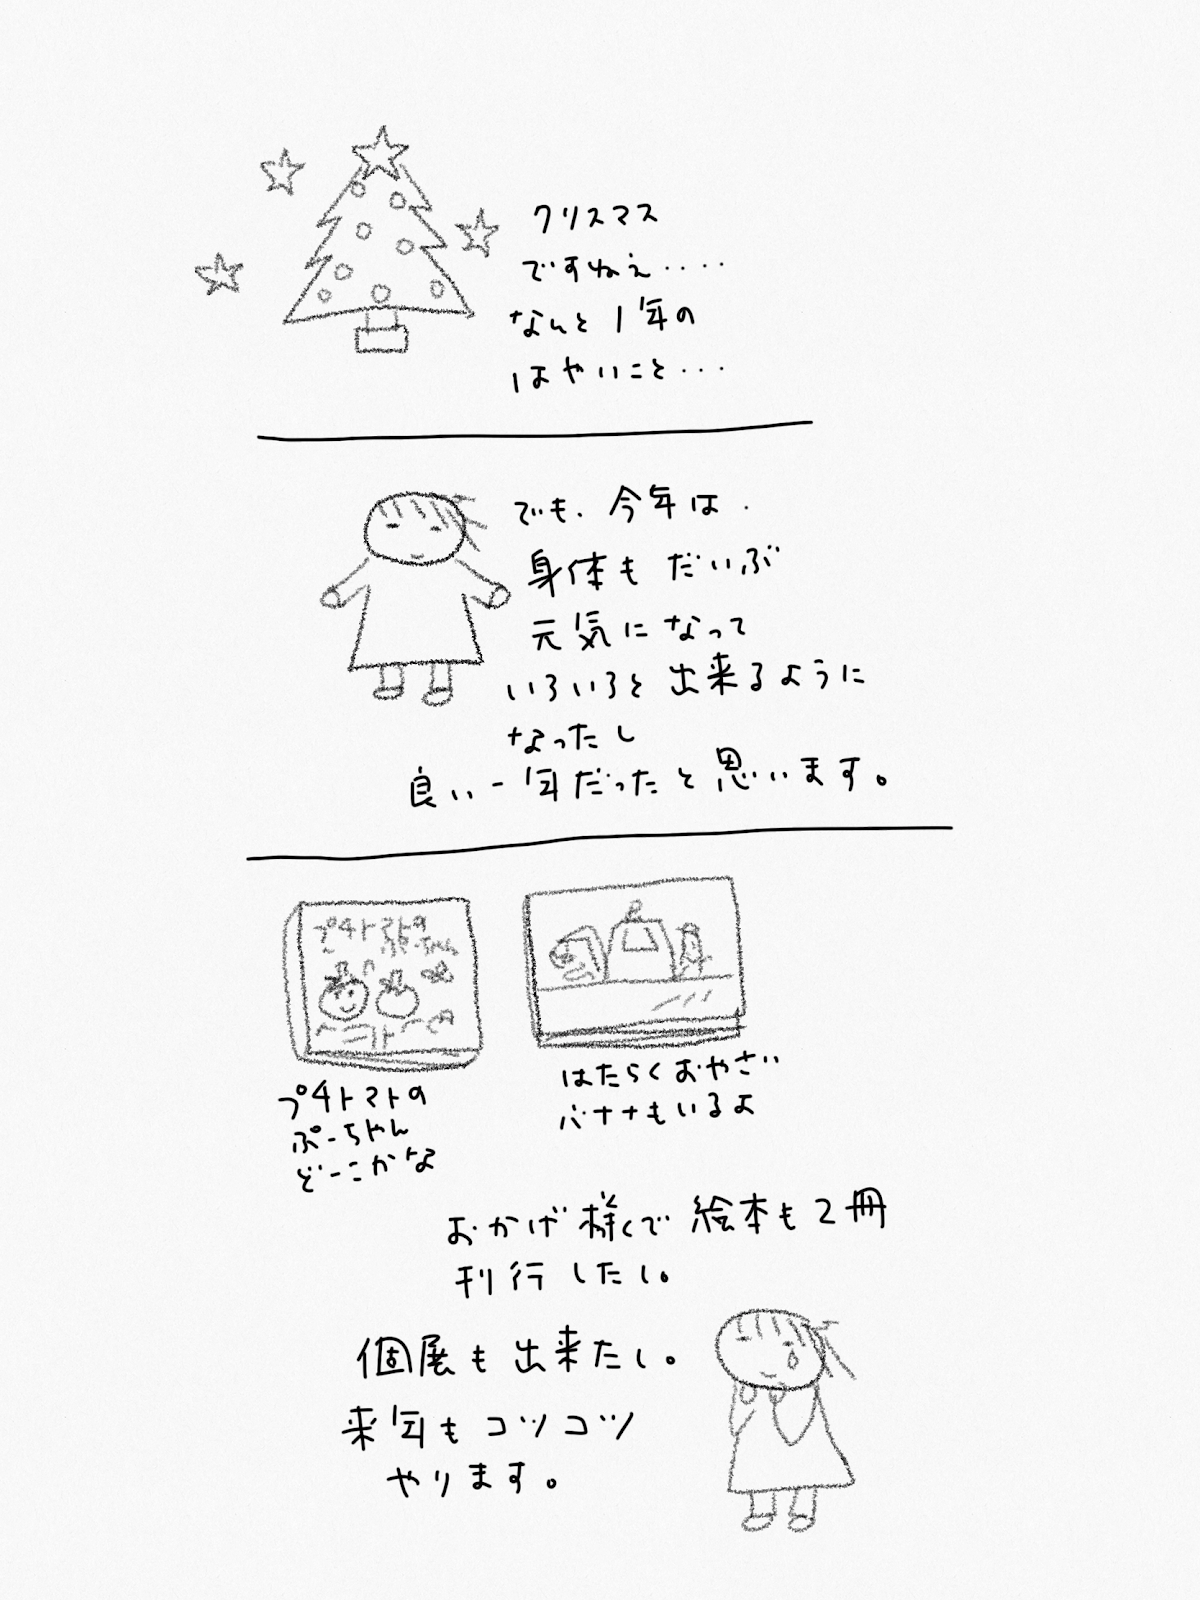 クリスマス
ですねえ‥‥
なんと1年の
はやいこと…
でも、今年は、
身体もだいぶ
元気になって
いろいろと出来るように
なったし
良い一年だったと思います。
プチトマトの
ぷーちゃん
プチトマトの
ぷーちゃん
どーこかな
はたらくおやさい
バナナもいるよ
おかげ様で絵本も2冊
刊行したし。
個展も出来たし。
来年もコツコツ
やります。